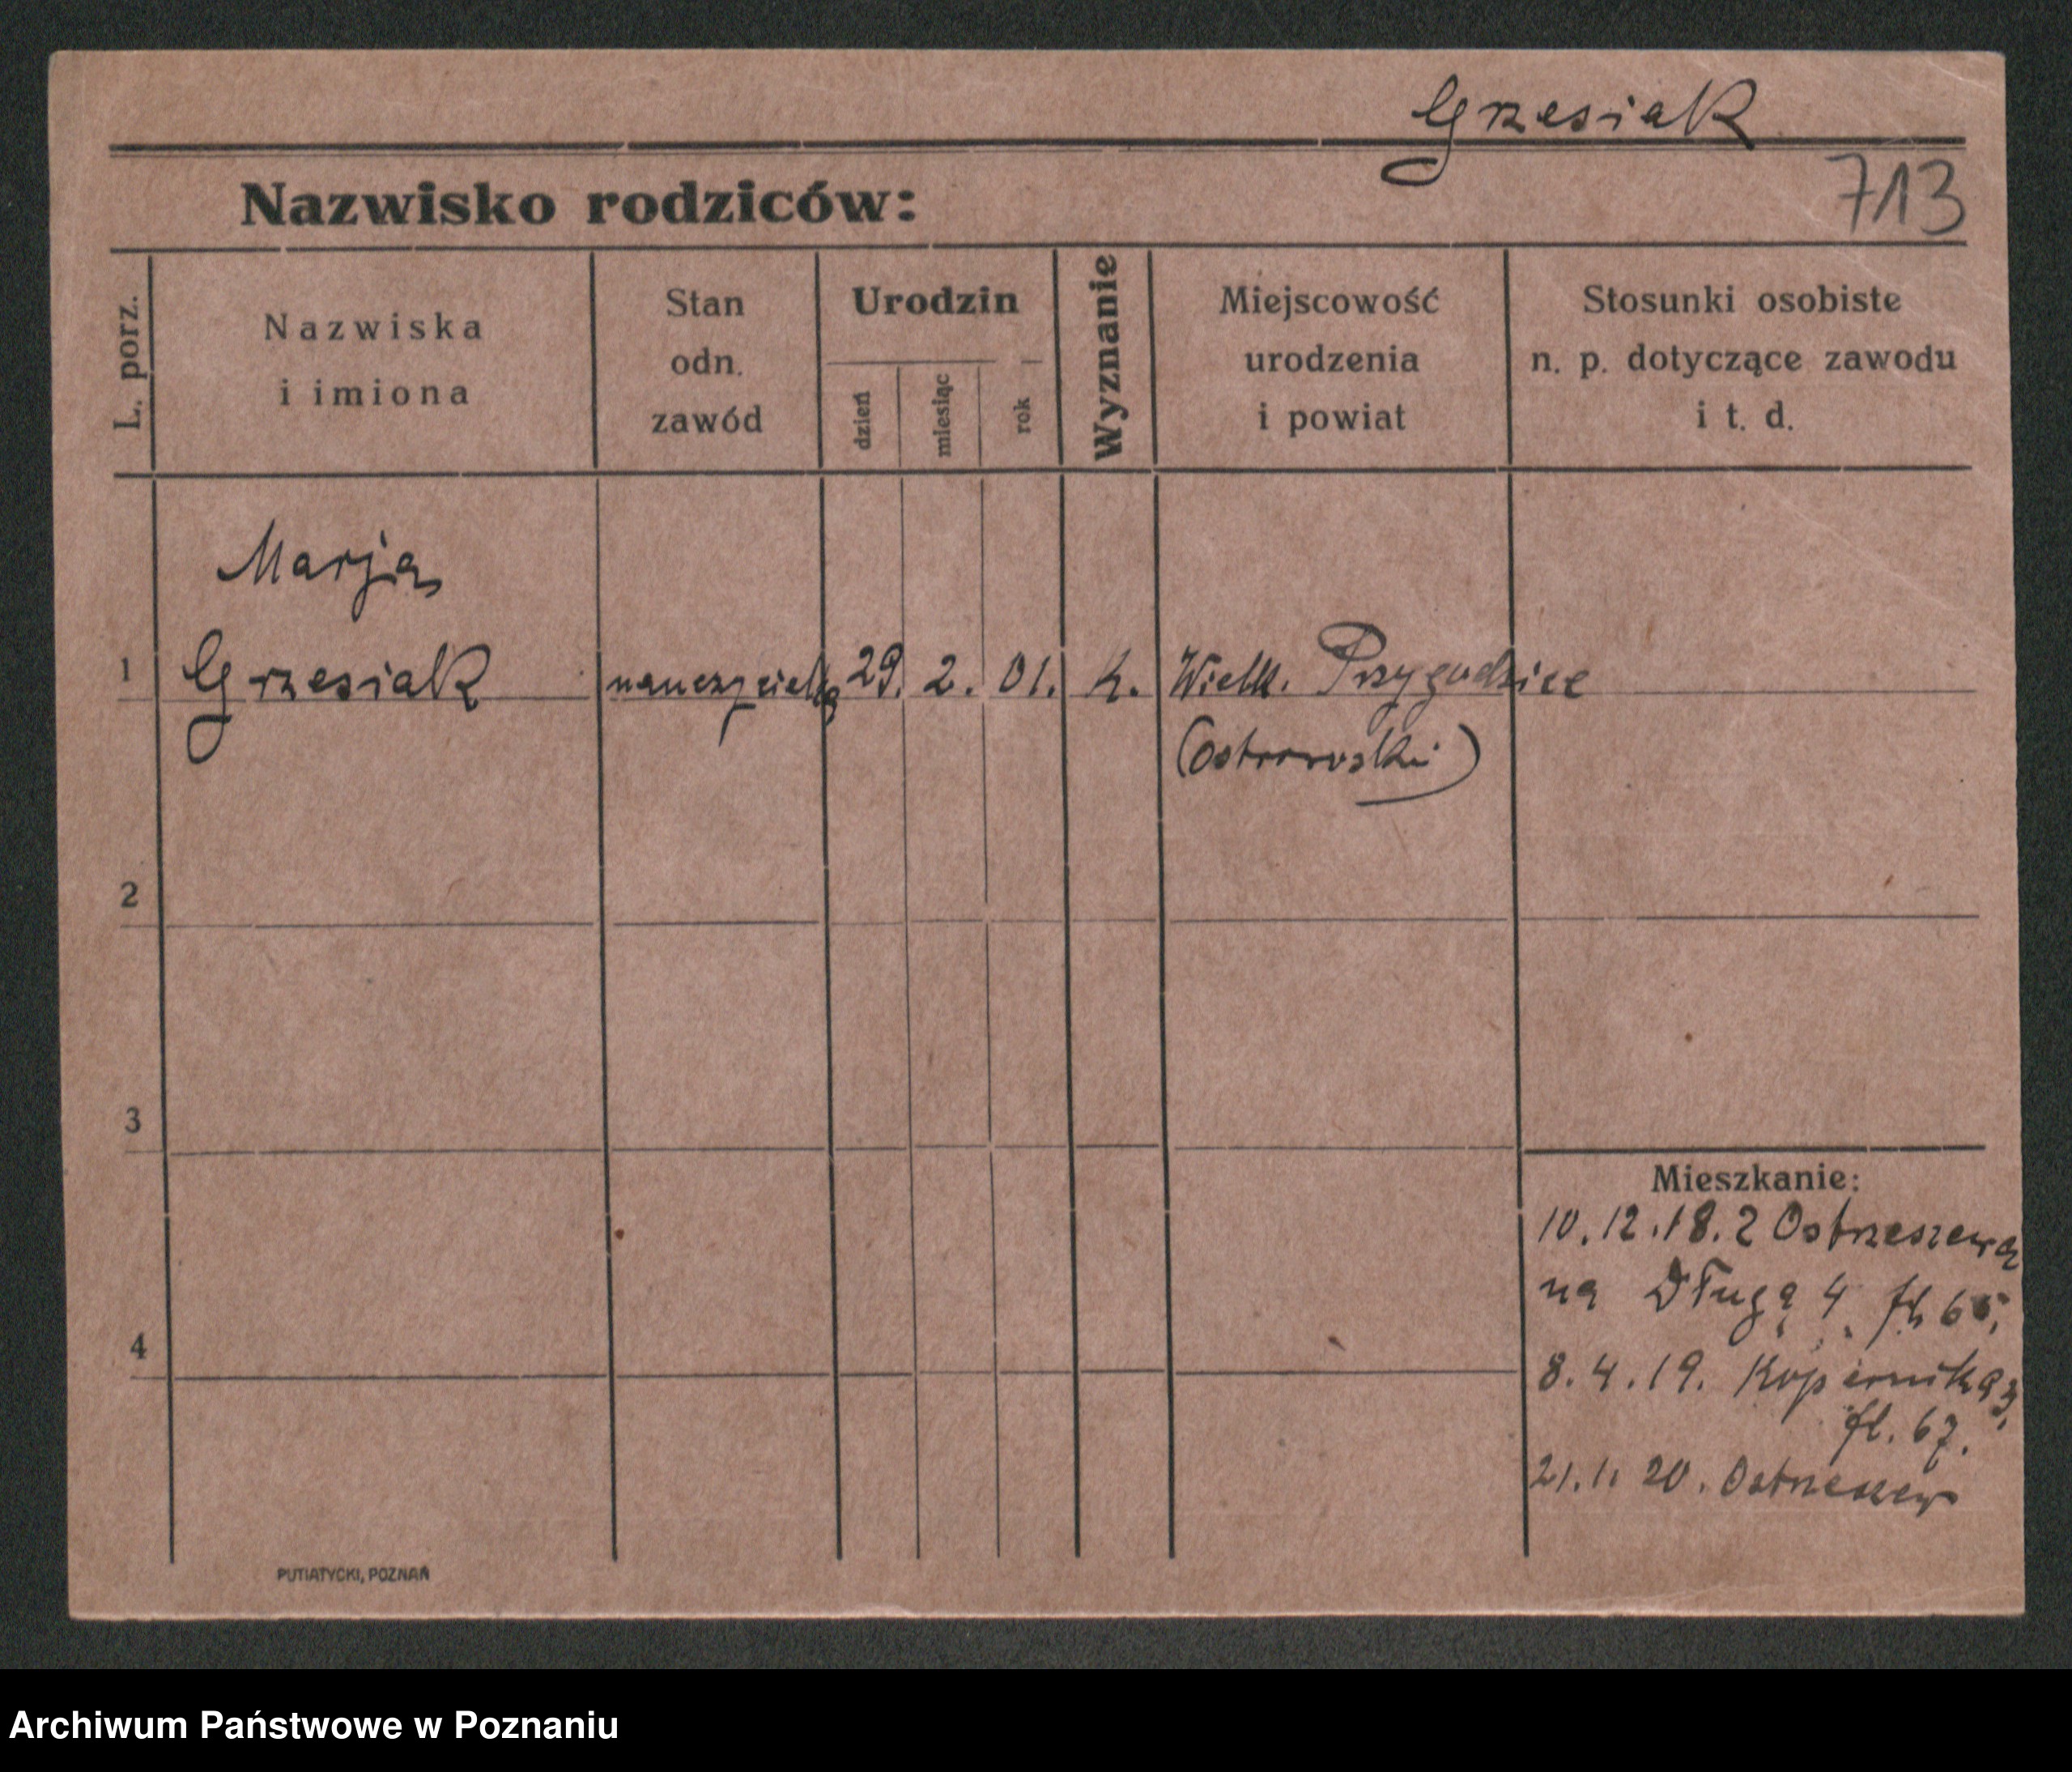 Grzesiak
713
Nazwisko rodziców:
L. porz.
Nazwiska
i imiona
Stan
odn.
zawód
Urodzin
dzień
miesiąc
rok
Wyznanie
Miejscowość
urodzenia
i powiat
Stosunki osobiste
n. p. dotyczące zawodu
i t. d.
Marja
1 Grzesiak nauczyciel 29. 2. 01. k. Wielk. Przygodzice
(Ostrowski)
2
3
4
Mieszkanie:
10.12.18. z Ostrzeszowa
na Długą 4 fl 65,
8.4.19. Kopernika 3,
fl. 67.
21.1. 20. Ostrzeszew
PUTIATYCKI, POZNAŃ
Archiwum Państwowe w Poznaniu